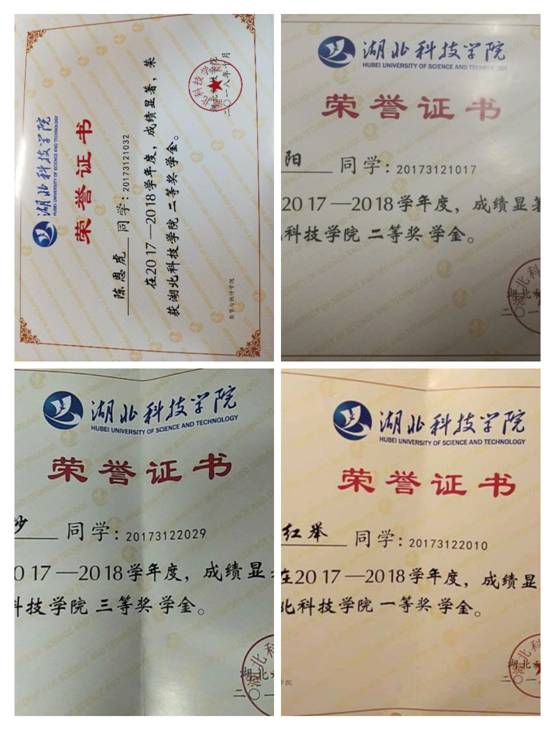 湖北科技学院
HUBEI UNIVERSITY OF SCIENCE AND TECHNOLOGY
荣誉证书
陈恩虎 同学:20173121032
在2017—2018学年度,成绩显著,荣
获湖北科技学院二等奖学金。
二〇一八年十月
湖北科技学院
HUBEI UNIVERSITY OF SCIENCE AND TECHNOLOGY
荣誉证书
阳 同学:20173121017
2017—2018学年度,成绩显著
科技学院二等奖学金。
湖北
二〇一
湖北科技学院
HUBEI UNIVERSITY OF SCIENCE AND TECHNOLOGY
荣誉证书
同学:20173122029
017—2018学年度,成绩显
科技学院三等奖学金。
湖北科技学院
HUBEI UNIVERSITY OF SCIENCE AND TECHNOLOGY
荣誉证书
红举 同学:20173122010
在2017—2018学年度,成绩显
北科技学院一等奖学金。
湖北
学院
二〇一